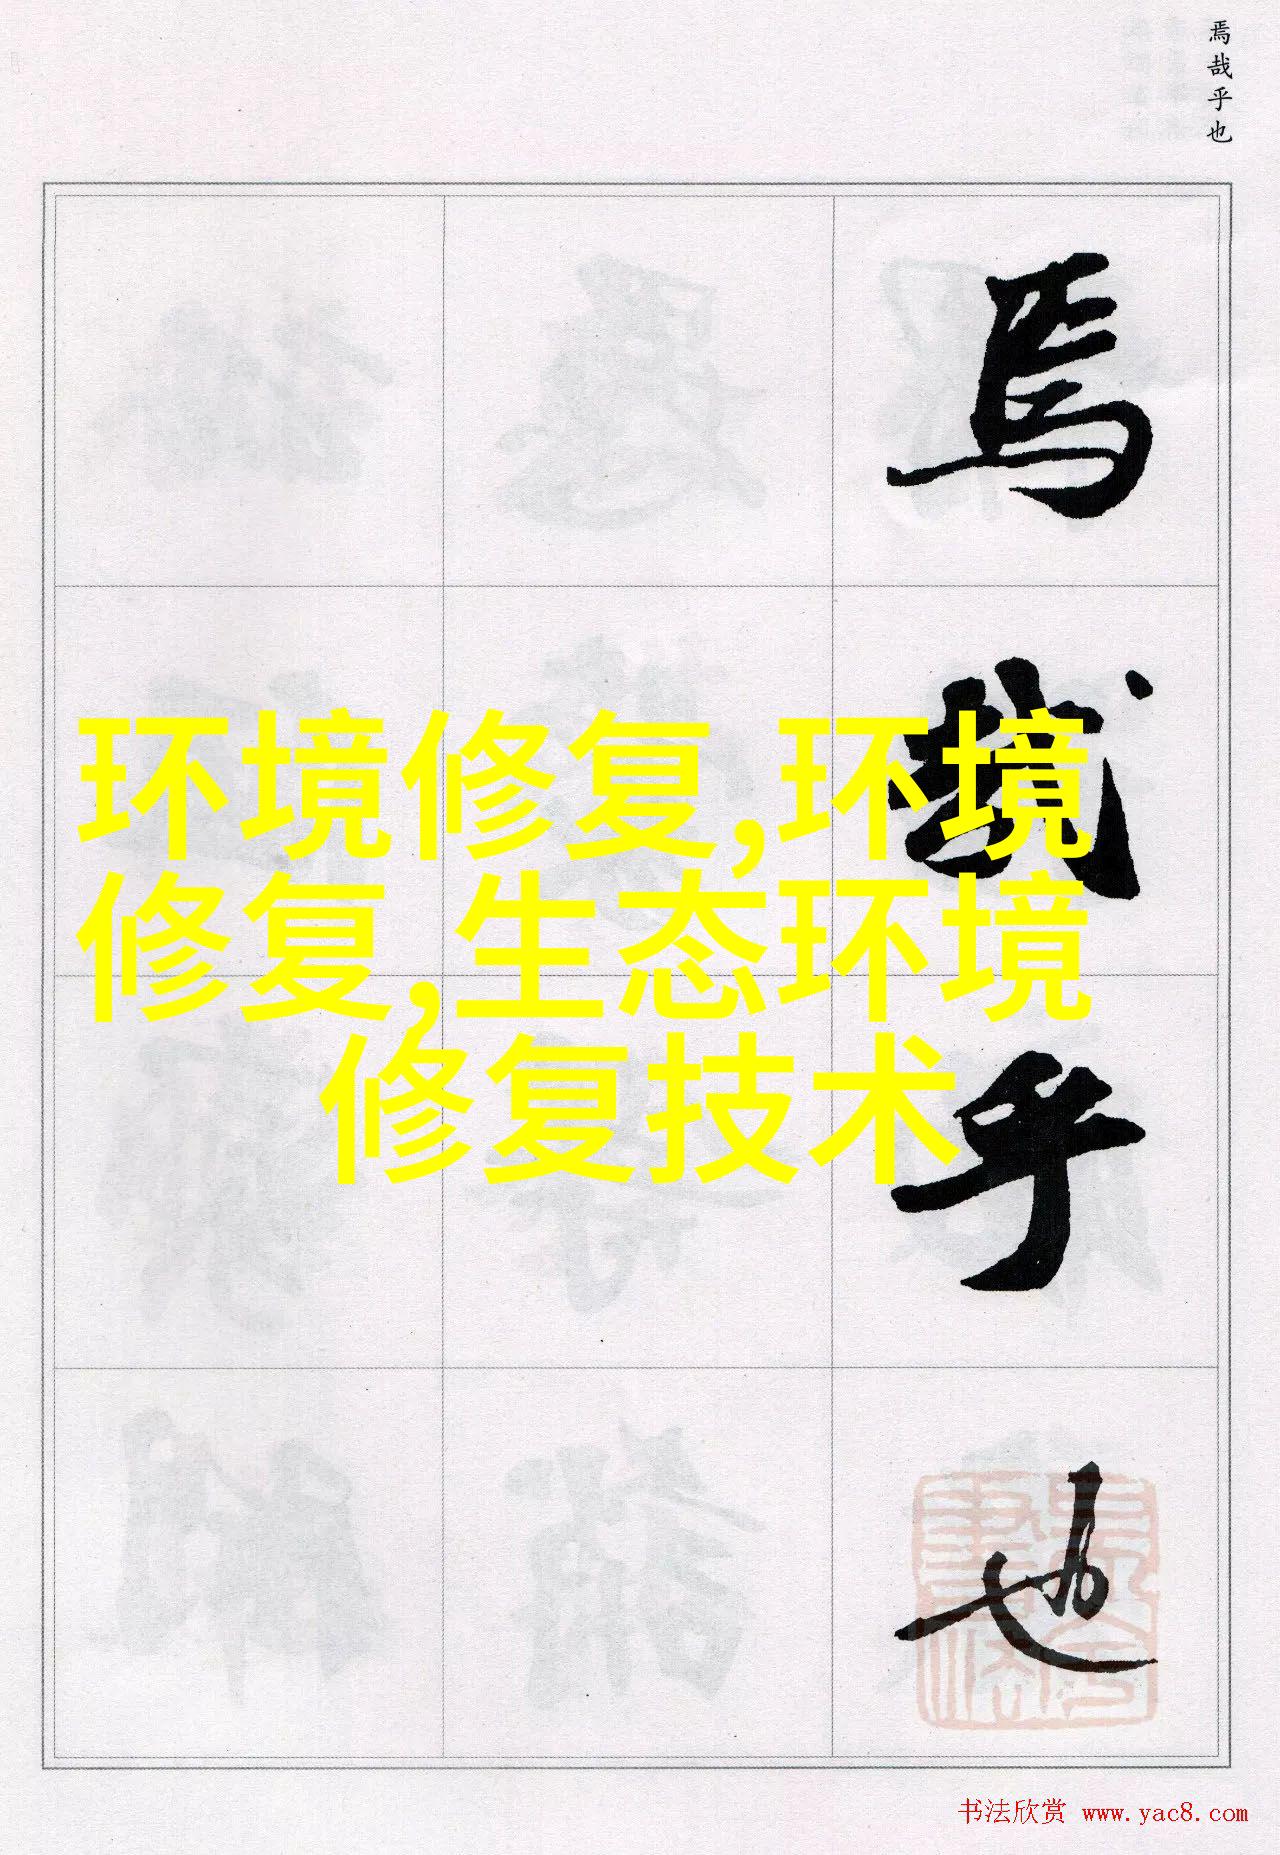 焉哉乎也
焉
哉
乎
也
环境修复,环境
修复,生态环境
修复技术
书法欣赏 www.yac8.com